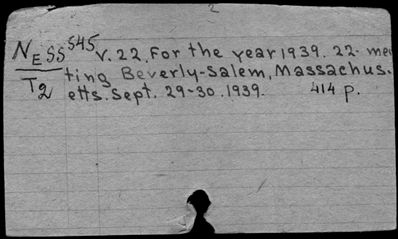 2
NESS S45 V. 22. For the year 1939. 22- mee
T2 ting Beverly-Salem, Massachus-
etts. Sept. 29-30. 1939. 414 p.